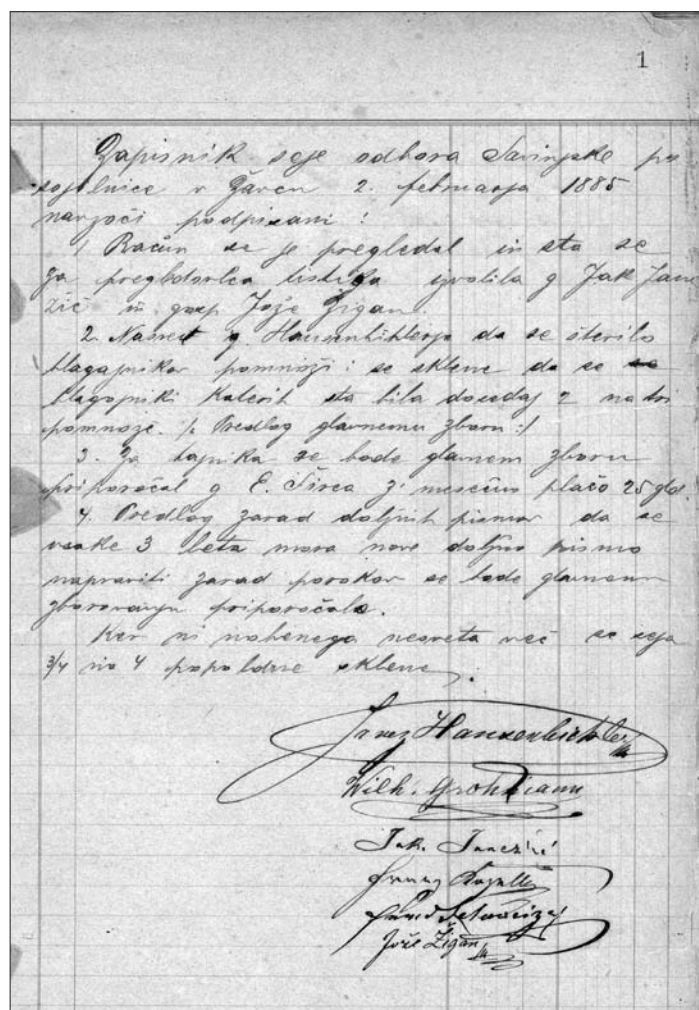 1
Zapisnik seje odbora Savinjske po
sojilnice v Žavcu 2. februarja 1885
navzoči podpisani:
1 Račun se je pregledal in sta se
za pregledovalca izvolila g Jak Jane
žič in gosp. Jože Žigan.
2. Nasvet g. Hausenbihlerja da se število
blagajnikov pomnoži; se sklene da se
blagajniki katerih sta bila dosedaj 2 na tri
pomnože. /: Predlog glavnemu zboru :/
3. Za tajnika se bode glavnem zboru
priporočal g E. Širca z' mesečno plačo 25 gld
4. Predlog zarad dolžnih pismov da se
vsake 3 leta mora novo dolžno pismo
napraviti zarad porokov se bode glavnem
zborovanju priporočalo.
Ker ni nobenega nasveta več se seja
3/4 na 4 popoldne sklene.
Janez Hausenbichler
Wilh. Grohmann
Jak. Janežič
Franz
Jože Žigan